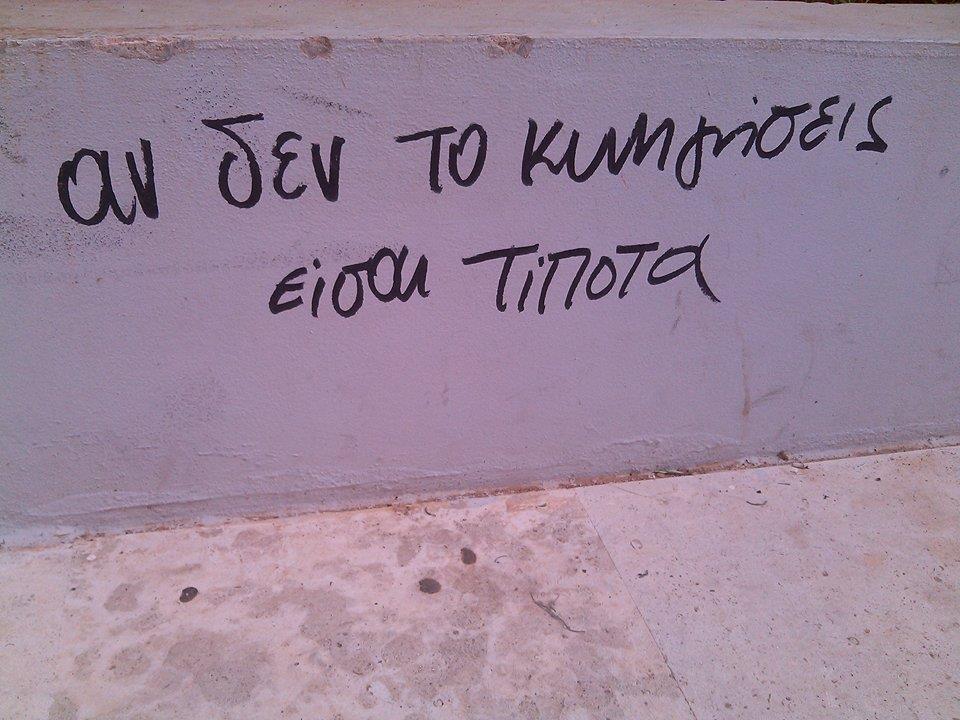 αν δεν το κυνηγήσεις
είσαι τίποτα